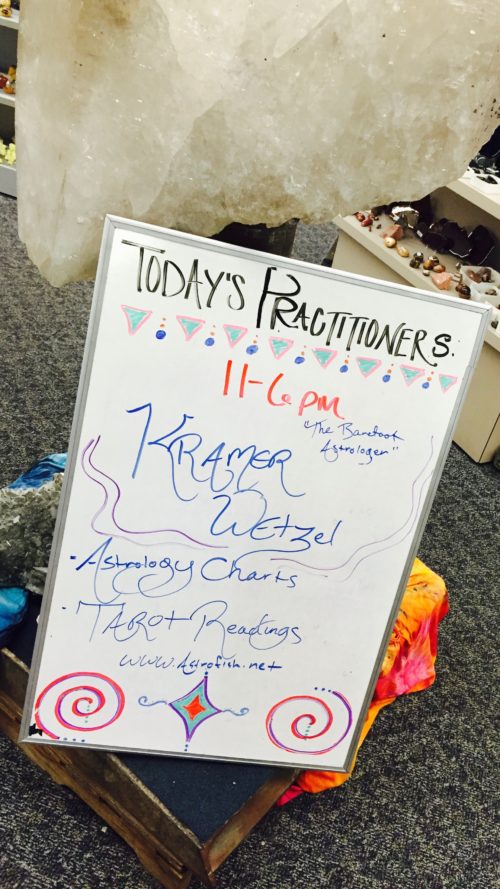 TODAY'S PRACTITIONERS:
11-6pm
"The Barefoot
Astrologer"
KRAMER
Wetzel
·Astrology Charts
·TAROT Readings
www.Astrofish.net